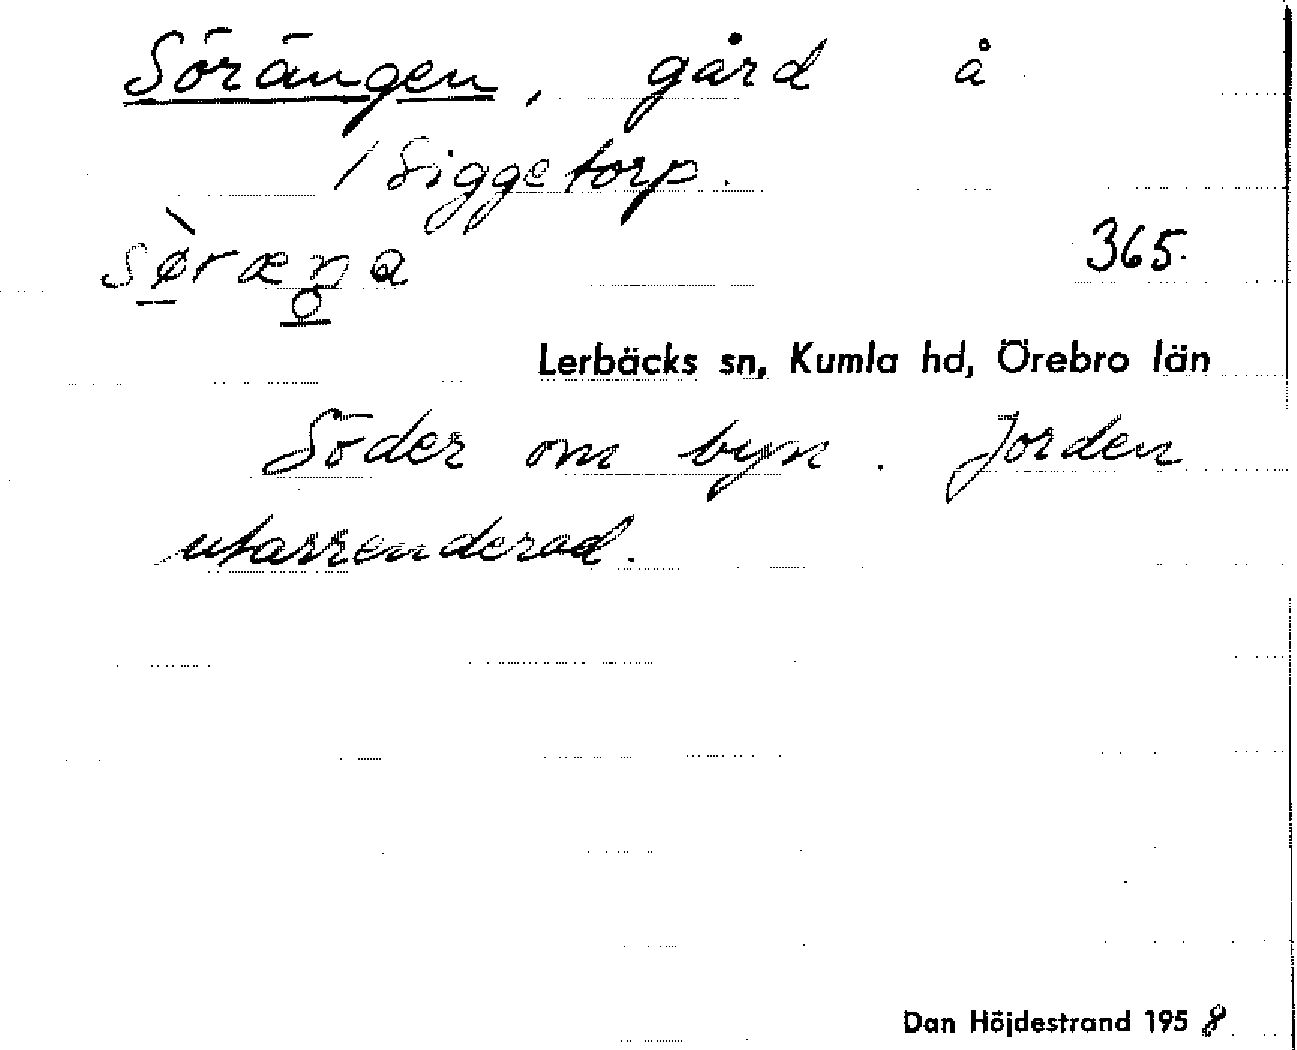 Sörängen, gård å
1 Siggetorp.
sø̀ræŋa
365.
Lerbäcks sn, Kumla hd, Örebro län
Söder om byn. Jorden
utarrenderad.
Dan Höjdestrand 1958